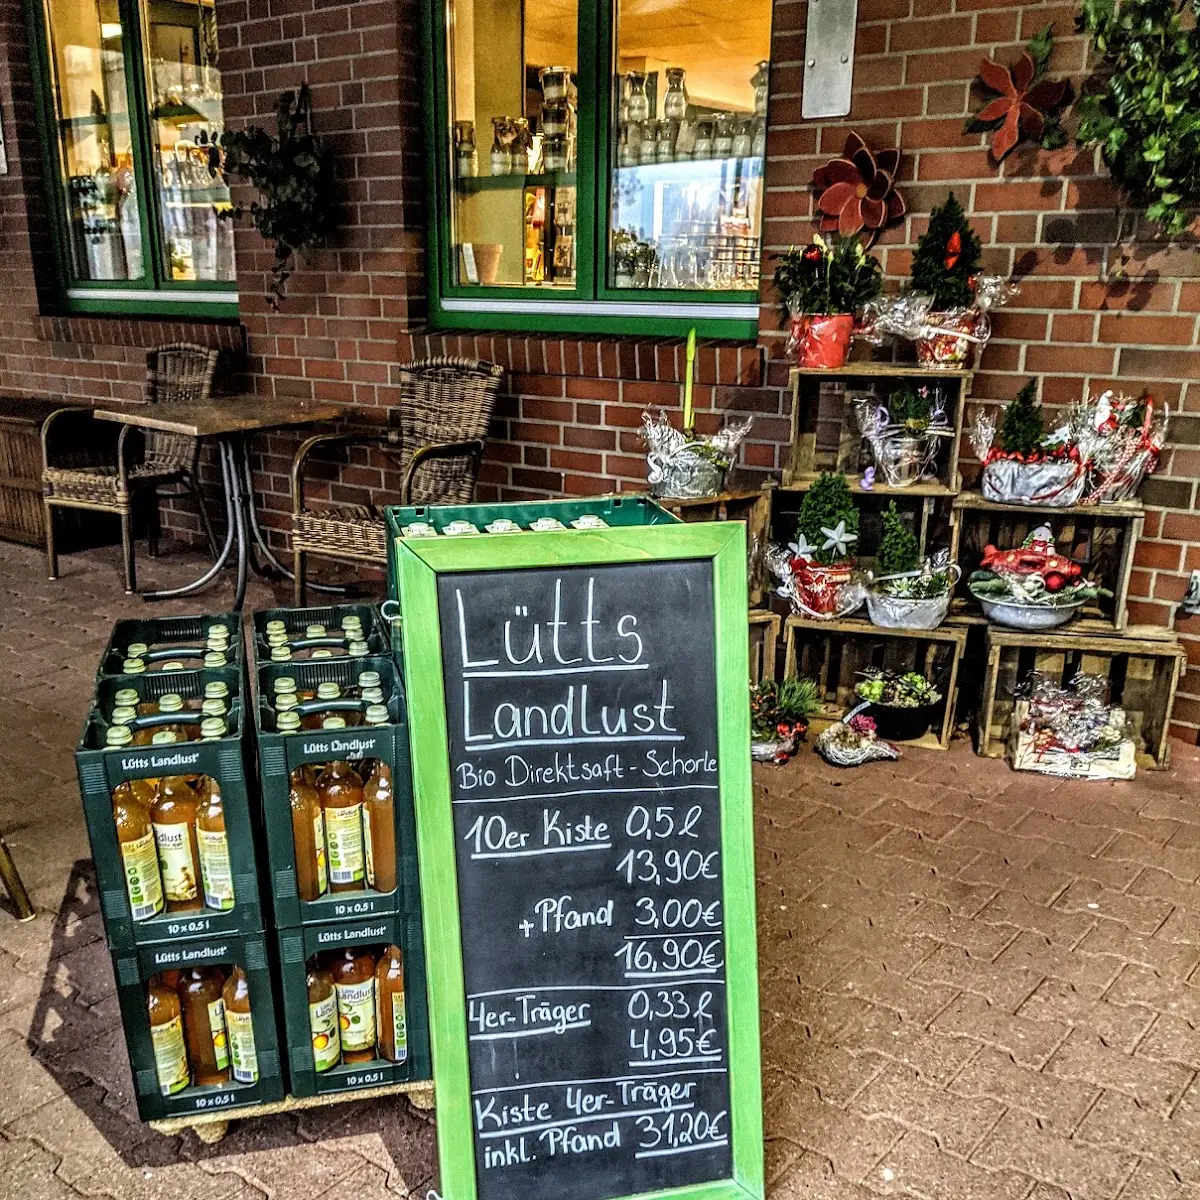 Lütts
Landlust
Bio Direktsaft-Schorle
10er Kiste 0,5 l
13,90€
+Pfand 3,00€
16,90€
4er-Träger 0,33 l
4,95€
Kiste 4er-Träger
inkl. Pfand 31,20€
Lütts Landlust
10 x 0,5 l
Lütts Landlust
10 x 0,5 l
Lütts Landlust
10 x 0,5 l
Lütts Landlust
10 x 0,5 l